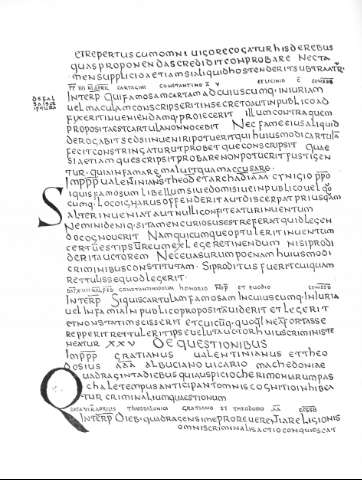 ET REPERTUS CUM OMNI UIGORE COGATUR HIS DE REBUS
QUAS PROPONENDAS CREDIDIT CONPROBARE NEC TA
MEN SUPPLICIO ETIAMSI ALIQUID HOSTENDERIT SUBTRAATUR
CARTAGINI CONSTANTINO
DE FAL
INTERP QUI FAMOSAM CARTAM AD CUIUSCUMQ INIURIAM
UEL MACULAM CONSCRIPSERIT IN SECRETO AUT IN PUBLICO AD
FIXERIT INUENIENDAMQ PROIECERIT ILLUM CONTRA QUEM
PROPOSITA EST CARTULA NON NOCEBIT NEC FAMAE EIUS ALIQUID
DEROGABIT SED SI INUENIRI POTUERIT QUI HUIUSMODI CARTULA
FECIT CONSTRINGATUR UT PROBET QUE CONSCRIPSIT QUE
SI AETIAM QUE SCRIPSIT PROBARE NON POTUERIT FUSTIGEN
TUR QUI INFAMARE MALUIT QUAM ACCUSARE
IMPPP UALENTINIANUS THEOD ET ARCHADIUS
SI QUIS FAMOSUM LIBELLUM SIUE DOMI SIUE IN PUBLICO UEL QUO
CUMQ LOCO IGNARUS OFFENDERIT AUT DISCERPAT PRIUSQUAM
ALTER INUENIAT AUT NULLI CONFITEATUR INUENTUM
NEMINI DENIQ SI TAM CURIOSUS EST REFERAT QUID LEGEN
DO COGNOUERIT NAM QUICUMQUE OPTULERIT INUENTUM
CERTUM EST IPSUM REUM EX LEGE RETINENDUM NISI PRODI
DERIT AUCTOREM NEC EUASURUM POENAM HUIUSMODI
CRIMINIBUS CONSTITUTAM SI PRODITUS FUERIT CUIQUAM
RETTULISSE QUOD LEGERIT
CONSTANTINOPOLI HONORIO ET EUODIO
INTERP SI QUIS CARTULAM FAMOSAM IN CUIUSCUMQ INIURIA
UEL INFAMIA IN PUBLICO PROPOSITA UIDERIT ET LEGERIT
ET NON STATIM SCISSERIT ET CUICUQ QUOD LEGERAT FORTASSE
REPPERIT RETTULERIT IPSE UELUT AUCTOR HUIUS CRIMINIS TE
NEATUR XXV DE QUESTIONIBUS
IMPPP GRATIANUS UALENTINIANUS ET THEO
DOSIUS AAA ALBUCIANO UICARIO MACHEDONIAE
QUADRAGINTA DIEBUS QUI AUSPICIO CHERIMONIURUM PAS
CHALE TEMPUS ANTICIPANT OMNIS COGNITIO INHIBEA
TUR CRIMINALIUM QUESTIONUM
APRILIS THESSALONICA GRATIANO ET THEODOSIO AA
INTERP DIEB QUADRAGENSIME PRO REUERENTIA RELIGIONIS
OMNIS CRIMINALIS ACTIO CONQUIESCAT